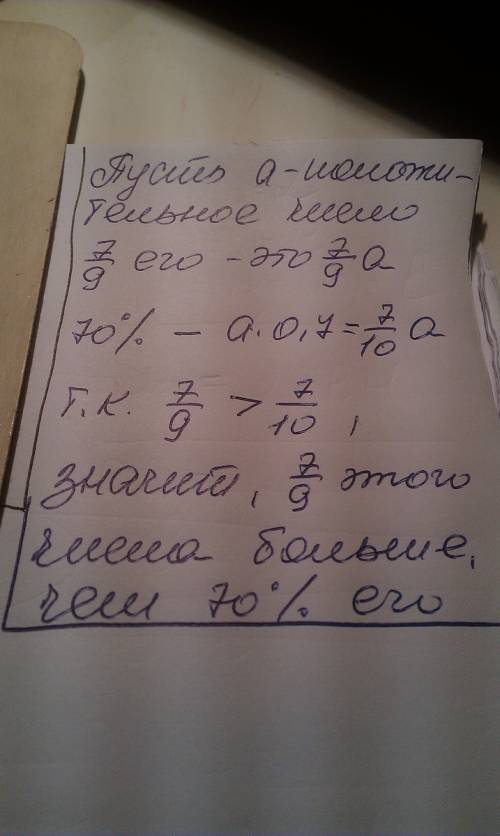 Пусть а-положи-
тельное число
7/9 его - это 7/9 а
70% — а·0,7=7/10 а
т.к. 7/9 > 7/10,
значит, 7/9 этого
числа больше,
чем 70% его